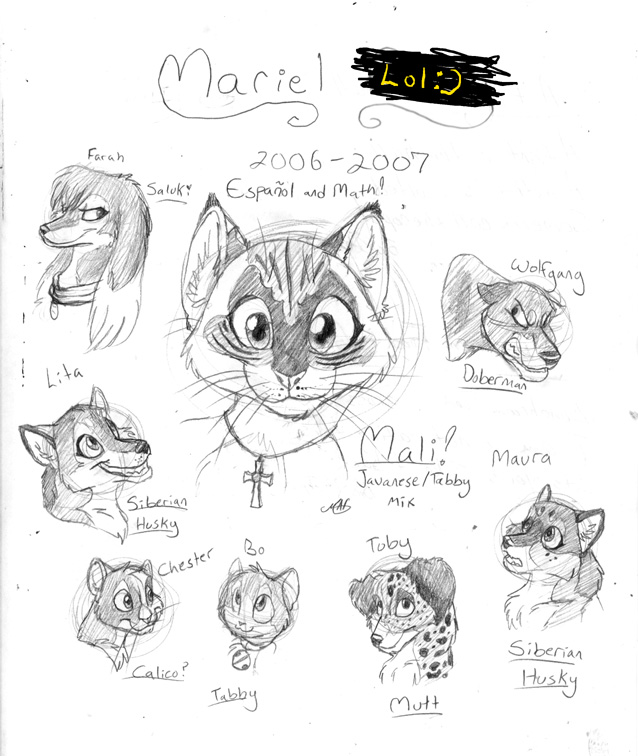 Mariel Lol :)
2006-2007
Español and Math!
Farah
Saluki
Wolfgang
Doberman
Lita
Siberian
Husky
Mali!
Javanese/Tabby
Mix
Maura
Siberian
Husky
Chester
Calico?
Bo
Tabby
Toby
Mutt